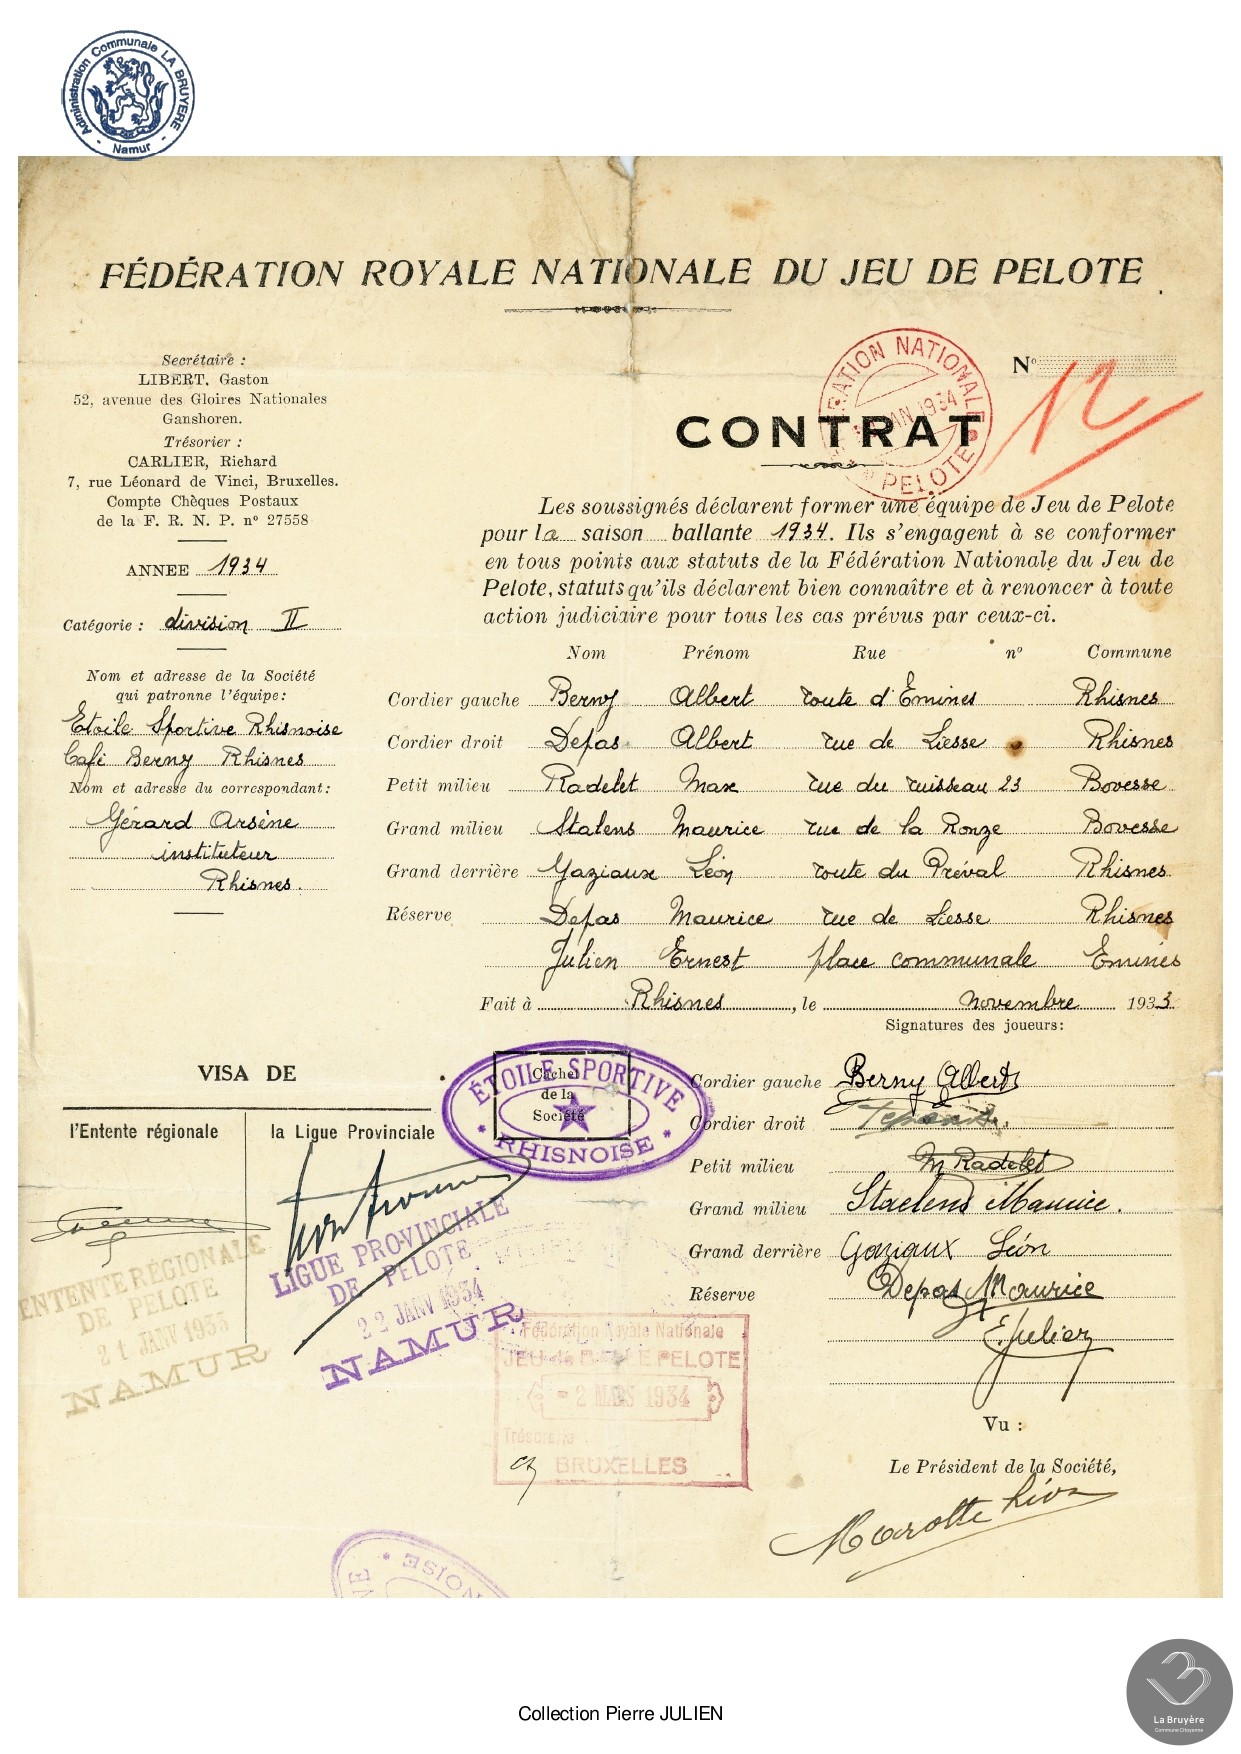 Administration Communale LA BRUYERE
- Namur -
FÉDÉRATION ROYALE NATIONALE DU JEU DE PELOTE
Secrétaire :
LIBERT, Gaston
52, avenue des Gloires Nationales
Ganshoren.
Trésorier :
CARLIER, Richard
7, rue Léonard de Vinci, Bruxelles.
Compte Chèques Postaux
de la F. R. N. P. n° 27558
ANNEE 1934
Catégorie : division II
Nom et adresse de la Société
qui patronne l'équipe :
Etoile Sportive Rhisnoise
Café Berny Rhisnes
Nom et adresse du correspondant :
Gérard Arsène
instituteur
Rhisnes.
N° 12
NATIONALE
JAN 1934
PELOTE
CONTRAT
Les soussignés déclarent former une équipe de Jeu de Pelote
pour la saison ballante 1934. Ils s'engagent à se conformer
en tous points aux statuts de la Fédération Nationale du Jeu de
Pelote, statuts qu'ils déclarent bien connaître et à renoncer à toute
action judiciaire pour tous les cas prévus par ceux-ci.
Nom Prénom Rue n° Commune
Cordier gauche Berny Albert route d'Emines Rhisnes
Cordier droit Depas Albert rue de Liesse Rhisnes
Petit milieu Radelet Max rue du ruisseau 23 Bovesse
Grand milieu Stalens Maurice rue de la Ronze Bovesse
Grand derrière Gaziaux Léon route du Préval Rhisnes
Réserve Depas Maurice rue de Liesse Rhisnes
Julien Ernest place communale Emines
Fait à Rhisnes, le novembre 1933
Signatures des joueurs :
Cordier gauche Berny Albert
Cordier droit
Petit milieu M Radelet
Grand milieu Staelens Maurice.
Grand derrière Gaziaux Léon
Réserve Depas Maurice
E. Julien
Vu :
Le Président de la Société,
Marotte Léon
VISA DE
l'Entente régionale
la Ligue Provinciale
Cachet
de la
Société
ÉTOILE SPORTIVE
* RHISNOISE *
ENTENTE RÉGIONALE
DE PELOTE
21 JANV 1933
NAMUR
LIGUE PROVINCIALE
DE PELOTE
22 JANV 1934
NAMUR
Fédération Royale Nationale
JEU de BALLE PELOTE
- 2 MARS 1934
BRUXELLES
Collection Pierre JULIEN
La Bruyère
Commune Citoyenne